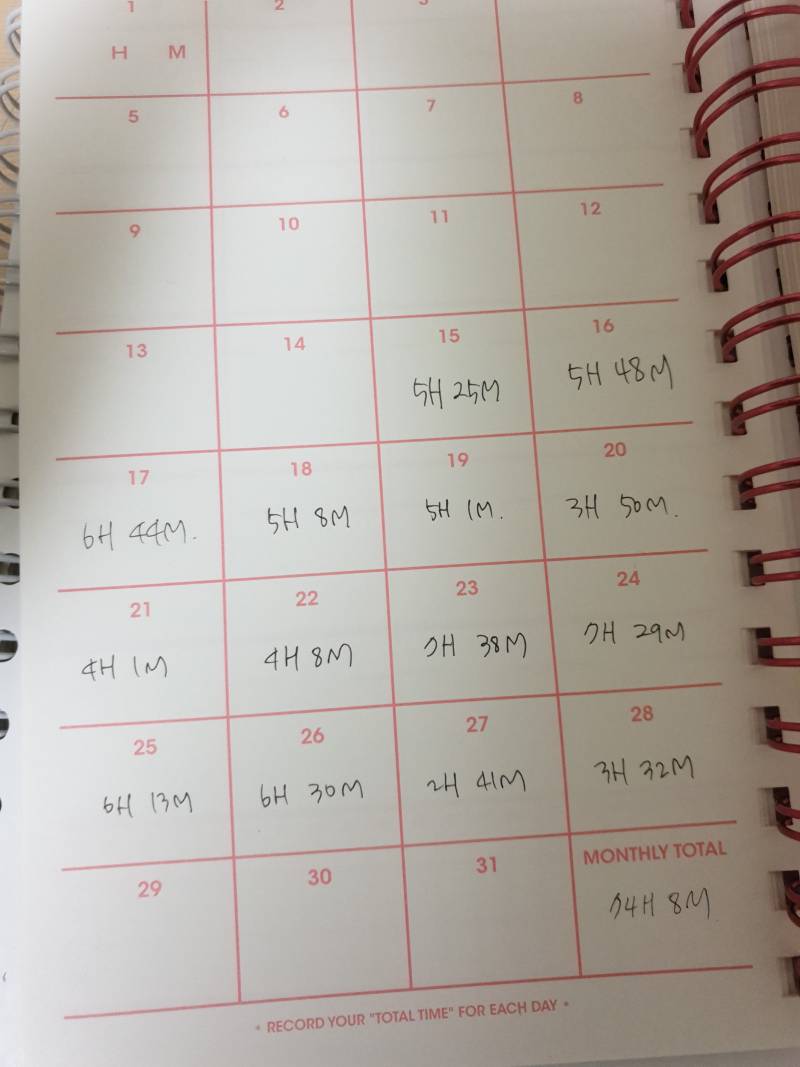 1 2 3
H M
5 6 7 8
9 10 11 12
13 14 15 16
5H 25M 5H 48M
17 18 19 20
6H 44M. 5H 8M 5H 1M. 3H 50M.
21 22 23 24
4H 1M 4H 8M 7H 38M 7H 29M
25 26 27 28
6H 13M 6H 30M 2H 41M 3H 32M
29 30 31 MONTHLY TOTAL
74H 8M
• RECORD YOUR "TOTAL TIME" FOR EACH DAY •